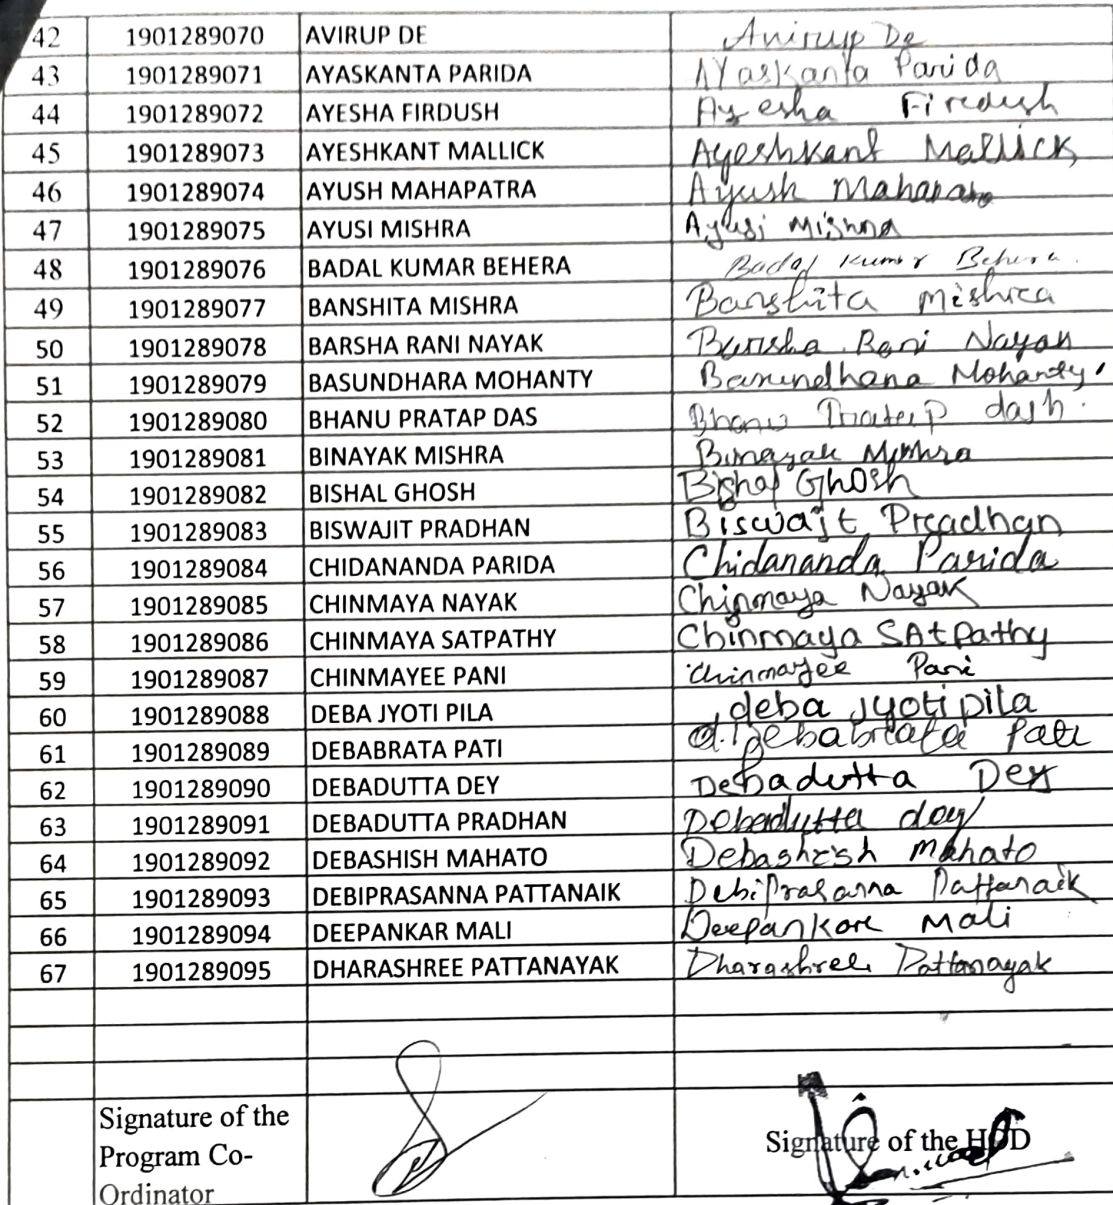 42 1901289070 AVIRUP DE Avirup De
43 1901289071 AYASKANTA PARIDA AYaskanta Parida
44 1901289072 AYESHA FIRDUSH Ayesha Firdush
45 1901289073 AYESHKANT MALLICK Ayeshkant Mallick
46 1901289074 AYUSH MAHAPATRA Ayush
47 1901289075 AYUSI MISHRA Ayusi Mishra
48 1901289076 BADAL KUMAR BEHERA Badal Kumar Behera.
49 1901289077 BANSHITA MISHRA Banshita Mishra
50 1901289078 BARSHA RANI NAYAK Barsha Rani Nayak
51 1901289079 BASUNDHARA MOHANTY Basundhara Mohanty
52 1901289080 BHANU PRATAP DAS Bhanu Pratap dash.
53 1901289081 BINAYAK MISHRA Binayak Mishra
54 1901289082 BISHAL GHOSH Bishal Ghosh
55 1901289083 BISWAJIT PRADHAN Biswajit Pradhan
56 1901289084 CHIDANANDA PARIDA Chidananda Parida
57 1901289085 CHINMAYA NAYAK Chinmaya Nayak
58 1901289086 CHINMAYA SATPATHY Chinmaya SAtpathy
59 1901289087 CHINMAYEE PANI chinmayee Pani
60 1901289088 DEBA JYOTI PILA deba jyoti pila
61 1901289089 DEBABRATA PATI Debabrata Pati
62 1901289090 DEBADUTTA DEY Debadutta Dey
63 1901289091 DEBADUTTA PRADHAN Debadutta dey
64 1901289092 DEBASHISH MAHATO Debashish Mahato
65 1901289093 DEBIPRASANNA PATTANAIK DebiPrasanna Pattanaik
66 1901289094 DEEPANKAR MALI Deepankar Mali
67 1901289095 DHARASHREE PATTANAYAK Dharashree Pattanayak
Signature of the
Program Co-
Ordinator
Signature of the HOD